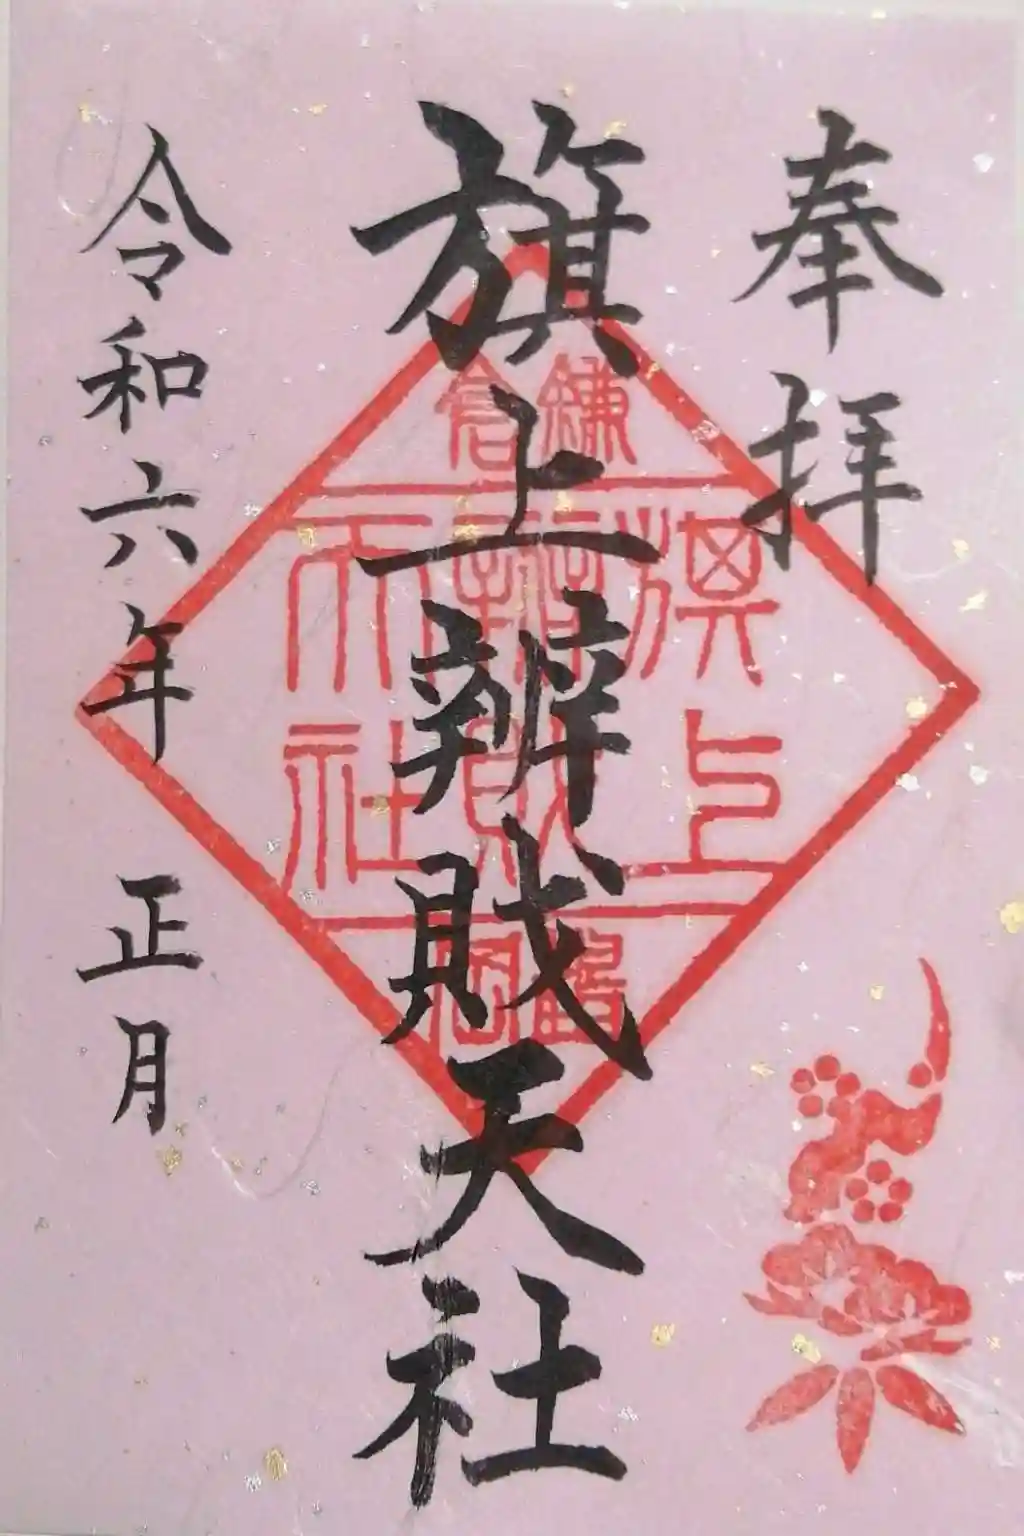 奉拝
旗上辨財天社
令和六年 正月
鎌倉
旗上
辯財
天社
鶴岡